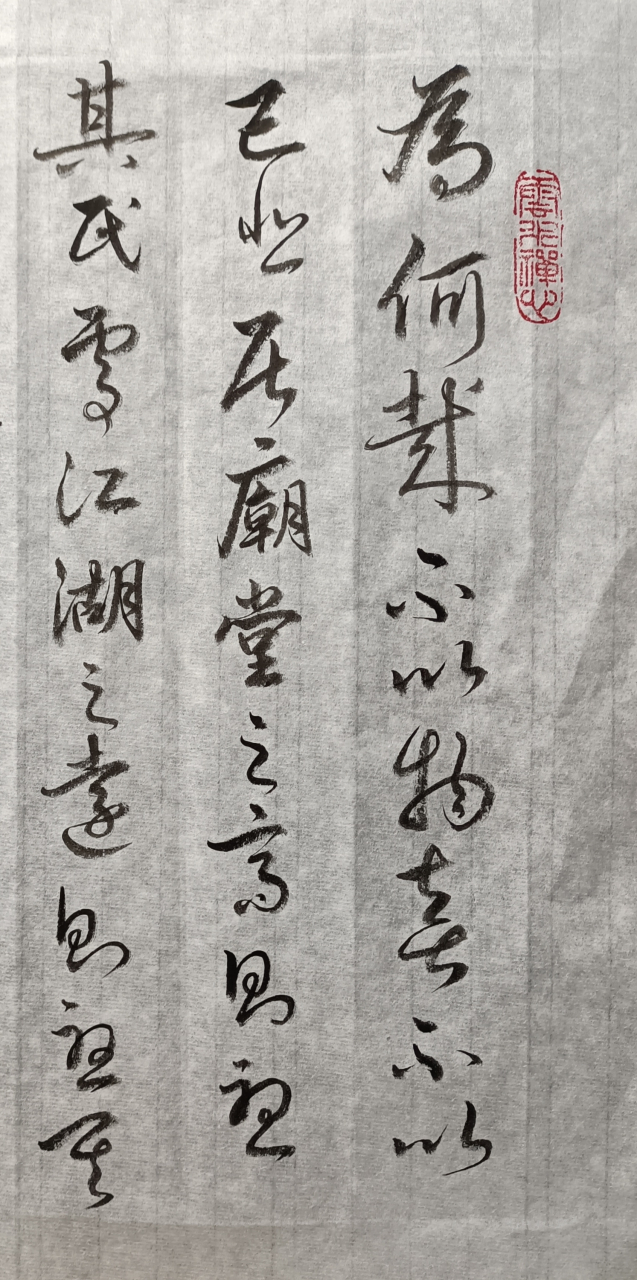 為何哉不以物喜不以
己悲居廟堂之高則憂
其民處江湖之遠則憂其